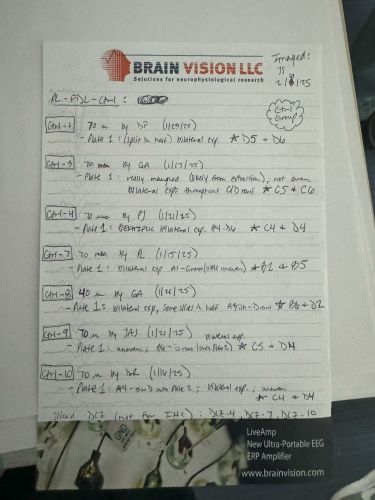 BRAIN VISION LLC
Solutions for neurophysiological research
Imaged:
JS
2/ /25
PL-FDL-Ctrl:
Ctrl Group
Ctrl-1 70 u by DP (1/29/25)
- Plate 1: (split in half) bilateral exp. ★ D5 & D6
Ctrl-3 70 by GA (1/17/25)
- Plate 1: really mangled (likely from extraction); not even
bilateral exp throughout C/D rows ★ C5 & C6
Ctrl-4 70 by PJ (1/21/25)
- Plate 1: BEAUTIFUL bilateral exp. B4-D6 ★ C4 & D4
Ctrl-7 70 by PL (1/15/25)
- Plate 1: bilateral exp A1- (little uneven) ★ B2 & B5
Ctrl-8 40 u by GA (1/21/25)
- Plate 1: bilateral exp, some slices ½ ★ B6 & D2
Ctrl-9 70 u by JAS (1/21/25) bilateral exp
- Plate 1: uneven; (into Plate 2) ★ C5 & D4
Ctrl-10 70 u by (1/16/25)
- Plate 1: A4- into Plate 2; bilateral exp.; uneven
★ C4 & D4
Sliced DCZ (not for IHC): DCZ-4, DCZ-7, DCZ-10
LiveAmp
New Ultra-Portable EEG
ERP Amplifier
www.brainvision.com